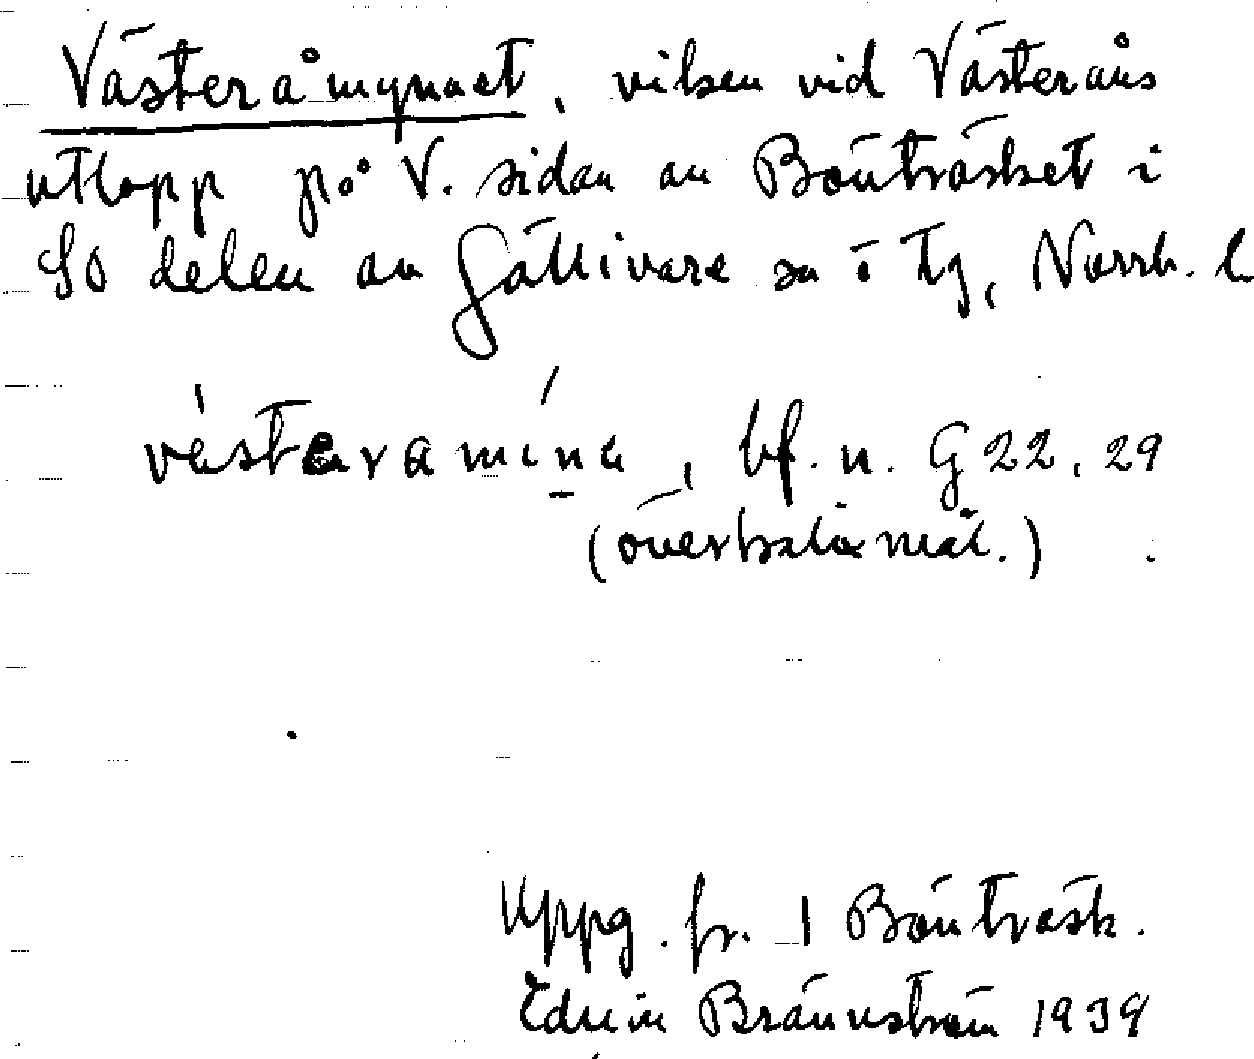 Västeråmynnet, viken vid Västeråns
utlopp på V. sidan av Bönträsket i
SO delen av Gällivare sn i Tg, Norrb. l
västeramína, bf. n. G 22, 29
(överkalixmål.)
Uppg. fr. 1 Bönträsk.
Edvin Brännström 1939